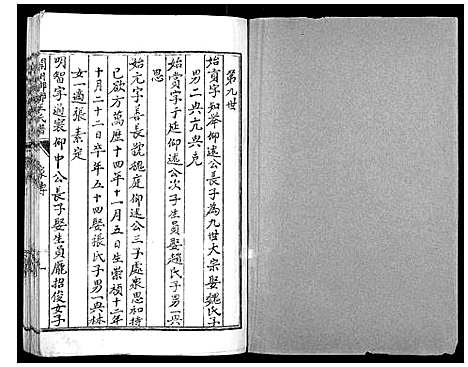 第九世
始貢字知舉仰述公長子為九世大宗娶魏氏子
男二典亢典克
始賞字于延仰述公次子生員娶趙氏子男一典
思
始元字善長號槐庭仰述公三子處衆思和持
已欲方萬歷十四年十一月五日生崇禎十二年
十月二十二日卒年五十四娶張氏子男一典林
女一適張素定
明智字通寰仰申公長子娶生員龐招俊女子